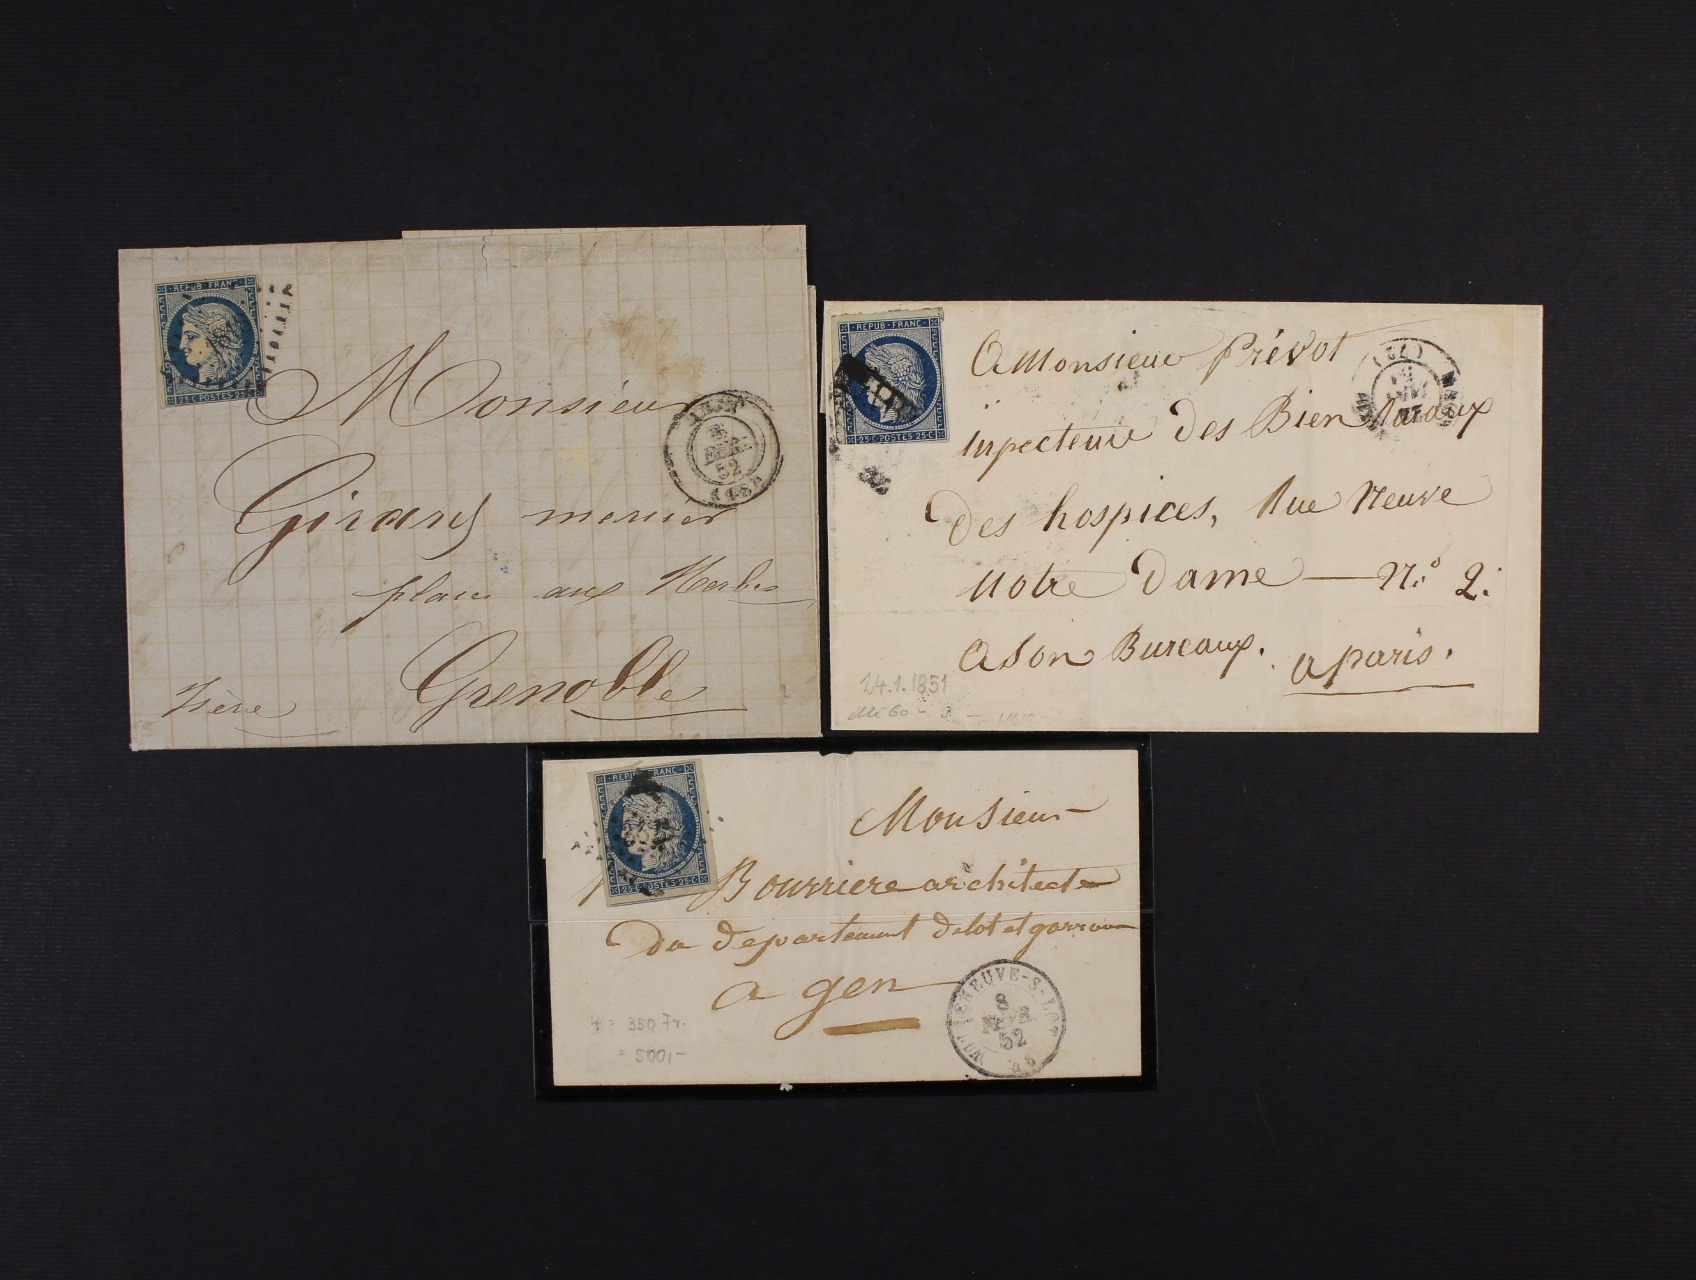 REPUB FRANC
25 C POSTES 25 C
Monsieur
2
FEVR.
52
Girard mercier
place aux Herbes
Grenoble
Isère
REPUB FRANC
25 C POSTES 25 C
A Monsieur Prévot
inpecteure des Bien Ruraux
des hospices, Rue Neuve
Notre Dame — N.° 2.
A Son Bureaux. a paris.
24.1.1851
REPUB FRANC
25 C POSTES 25 C
Monsieur
Bourriere architecte
Du departement delot et garonne
a gen
VILLENEUVE-S-LOT
8
FEVR.
52
350 Fr.